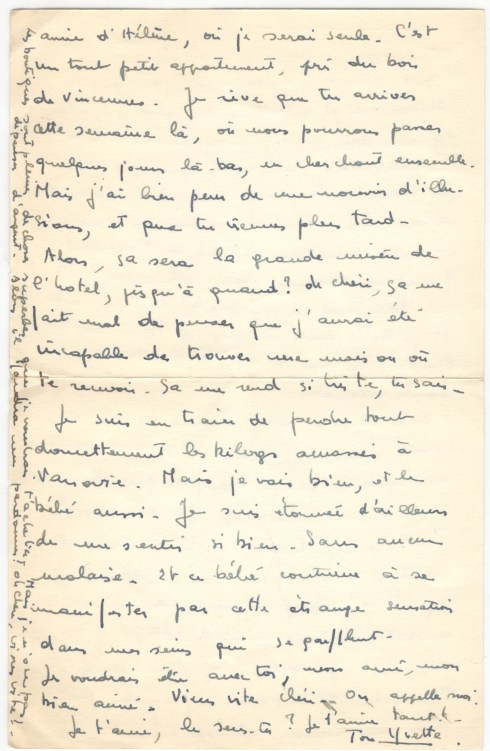 amie d'Hélène, où je serai seule. C'est
un tout petit appartement, près du bois
de Vincennes. Je rêve que tu arrives
cette semaine là, où nous pourrons passer
quelques jours là-bas, en cherchant ensemble.
Mais j'ai bien peur de me nourrir d'illu-
sions, et que tu viennes plus tard -
Alors, ça sera la grande misère de
l'hotel, jusqu'à quand? oh chéri, ça me
fait mal de penser que j'aurai été
incapable de trouver une maison où
te recevoir. Ça me rend si triste, tu sais -
Je suis en train de perdre tout
doucettement les kilogs amassés à
Varsovie. Mais je vais bien, et le
bébé aussi. Je suis étonnée d'ailleurs
de me sentir si bien. Sans aucun
malaise. Et ce bébé continue à se
manifester par cette étrange sensation
dans mes seins qui se gonflent -
Je voudrais être avec toi, mon aimé, mon
bien aimé. Viens vite chéri - Ou appelle-moi.
Je t'aime, le sens-tu? Je t'aime tant! -
Ton Yvette.
Les boutiques sont pleines de choses superbes que je voudrais t'acheter. Mais je n'ose pas
dépenser d'argent.